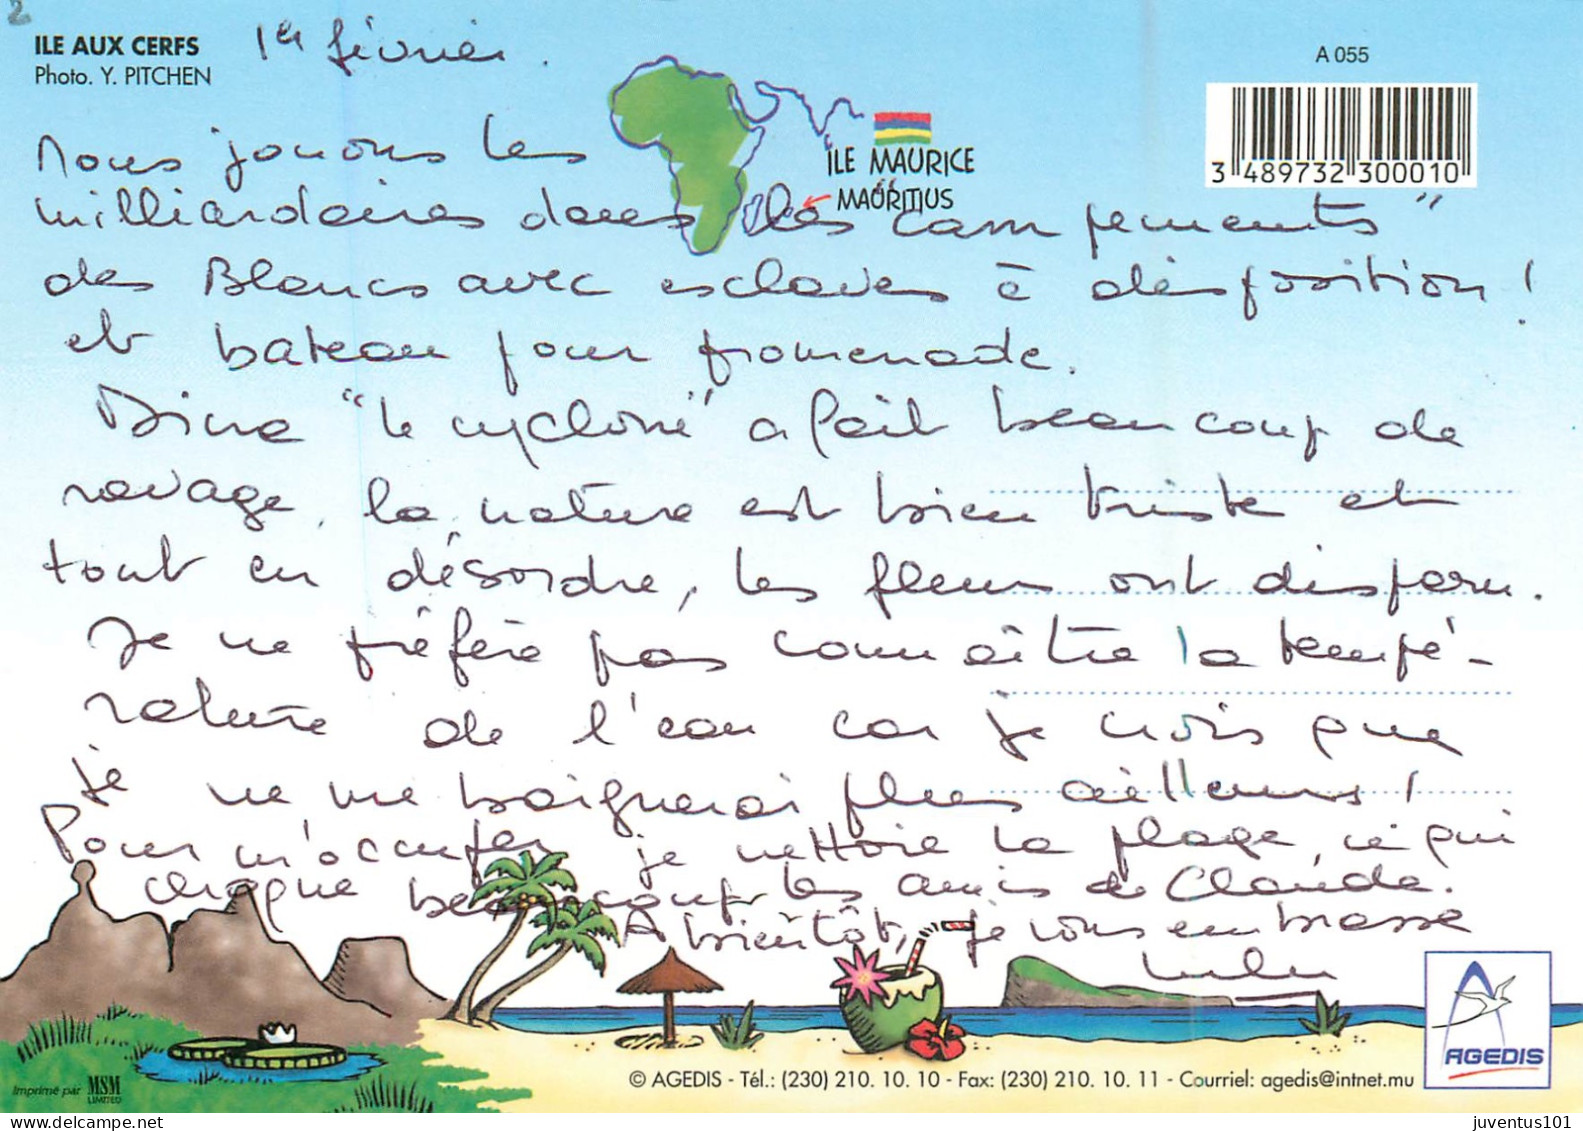 2
ILE AUX CERFS
Photo. Y. PITCHEN
1er février.
A 055
3 489732 300010
ÎLE MAURICE
MAURITIUS
Nous jouons les
milliardaires dans les campements"
des Blancs avec esclaves à disposition!
et bateau pour promenade.
Dina "le cyclone" a fait beaucoup de
ravage, la nature est bien triste et
tout en désordre, les fleurs ont disparu.
Je ne préfère pas connaître la tempé-
rature de l'eau car je crois que
je ne me baignerai plus ailleurs!
Pour m'occuper je nettoie la plage, ce qui
choque beaucoup les amis de Claude.
A bientôt, je vous embrasse
Lulu
Imprimé par MSM LIMITED
© AGEDIS - Tél.: (230) 210. 10. 10 - Fax: (230) 210. 10. 11 - Courriel: agedis@intnet.mu
AGEDIS
juventus101